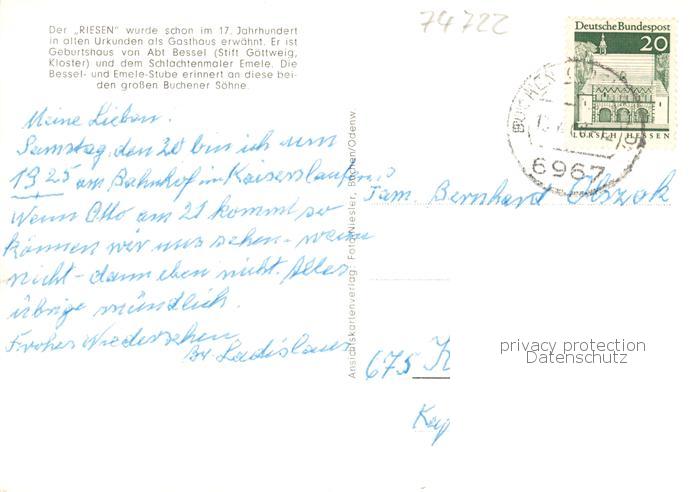 74722
Der „RIESEN" wurde schon im 17. Jahrhundert
in alten Urkunden als Gasthaus erwähnt. Er ist
Geburtshaus von Abt Bessel (Stift Göttweig,
Kloster) und dem Schlachtenmaler Emele. Die
Bessel- und Emele-Stube erinnert an diese bei-
den großen Buchener Söhne.
Deutsche Bundespost
20
LORSCH HESSEN
BUCHEN
6967
Meine Lieben.
Samstag, den 20 bin ich um
1925 am Bahnhof in Kaiserslautern.
Wenn Otto am 21 kommt so
können wir uns sehen - wenn
nicht - dann eben nicht. Alles
übrige mündlich.
Frohes Wiedersehen
Br. Ladislaus
Ansichtskartenverlag: Foto-Niesler, Buchen/Odenw.
Fam. Bernhard Olszok
675 K
Kap
privacy protection
Datenschutz